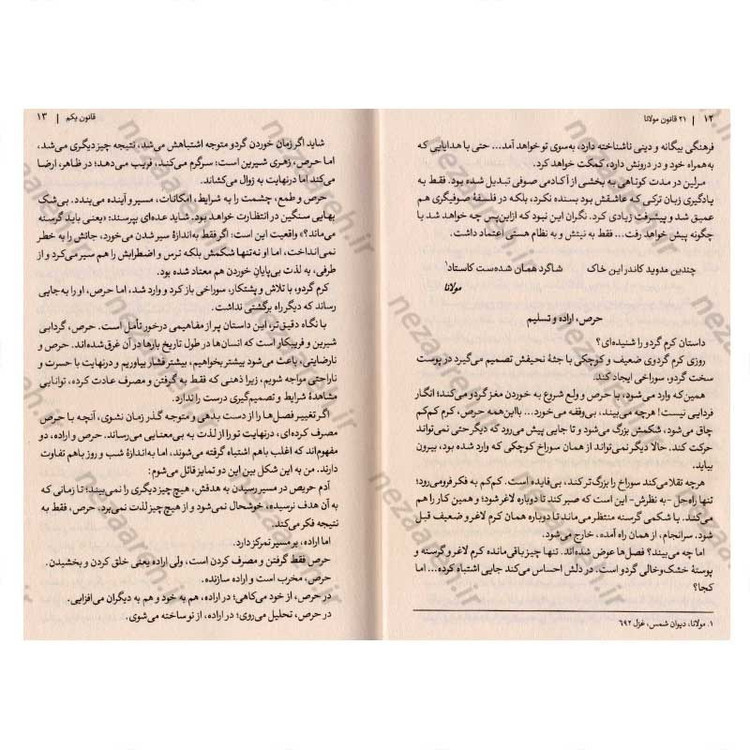 ۱۲ | ۲۱ قانون مولانا
فرهنگی بیگانه و دینی ناشناخته دارد، به‌سوی تو خواهد آمد... حتی با هدایایی که
به‌همراه خود و در درونش دارد، کمکت خواهد کرد.
مرلین در مدت کوتاهی به بخشی از آکادمی صوفی تبدیل شده بود. فقط به
یادگیری زبان ترکی که عاشقش بود بسنده نکرد، بلکه در فلسفهٔ صوفیگری هم
عمیق شد و پیشرفت زیادی کرد. نگران این نبود که ازاین‌پس چه خواهد شد یا
چگونه پیش خواهد رفت... فقط به نیتش و به نظام هستی اعتماد داشت.
چندین مدوید کاندر این خاک شاگرد همان شده‌ست کاستاد۱
مولانا
حرص، اراده و تسلیم
داستان کرم گردو را شنیده‌ای؟
روزی کرم گردوی ضعیف و کوچکی با جثهٔ نحیفش تصمیم می‌گیرد در پوست
سخت گردو، سوراخی ایجاد کند.
همین‌که وارد می‌شود، با حرص و ولع شروع به خوردن مغز گردو می‌کند؛ انگار
فردایی نیست! هرچه می‌بیند، بی‌وقفه می‌خورد... بااین‌همه حرص، کرم کم‌کم
چاق می‌شود، شکمش بزرگ می‌شود و تا جایی پیش می‌رود که دیگر حتی نمی‌تواند
حرکت کند. حالا دیگر نمی‌تواند از همان سوراخ کوچکی که وارد شده بود، بیرون
بیاید.
هرچه تقلا می‌کند سوراخ را بزرگ‌تر کند، بی‌فایده است. کم‌کم به فکر فرومی‌رود؛
تنها راه‌حل -به نظرش- این است که صبر کند تا دوباره لاغر شود؛ و همین کار را هم
می‌کند. با شکمی گرسنه منتظر می‌ماند تا دوباره همان کرم لاغر و ضعیف قبل
شود. سرانجام، از همان راه آمده، خارج می‌شود.
اما چه می‌بیند؟ فصل‌ها عوض شده‌اند. تنها چیز باقی‌مانده کرم لاغر و گرسنه و
پوستهٔ خشک‌وخالی گردو است. در دلش احساس می‌کند جایی اشتباه کرده... اما
کجا؟
۱. مولانا، دیوان شمس، غزل ۶۹۲
قانون یکم | ۱۳
شاید اگر زمان خوردن گردو متوجه اشتباهش می‌شد، نتیجه چیز دیگری می‌شد،
اما حرص، زهری شیرین است: سرگرم می‌کند، فریب می‌دهد؛ در ظاهر، ارضا
می‌کند اما درنهایت به زوال می‌کشاند.
حرص و طمع، چشمت را به شرایط، امکانات، مسیر و آینده می‌بندد. بی‌شک
بهایی سنگین در انتظارت خواهد بود. شاید عده‌ای بپرسند: «یعنی باید گرسنه
می‌ماند؟» واقعیت این است: اگر فقط به‌اندازهٔ سیر شدن می‌خورد، جانش را به خطر
نمی‌انداخت، اما او نه‌تنها شکمش بلکه ترس و اضطرابش را هم سیر می‌کرد و از
طرفی، به لذت بی‌پایانِ خوردن هم معتاد شده بود.
کرم گردو، با تلاش و پشتکار، سوراخی باز کرد و وارد شد، اما حرص، او را به جایی
رساند که دیگر راه برگشتی نداشت.
با نگاه دقیق‌تر، این داستان پر از مفاهیمی درخور تأمل است. حرص، گردابی
شیرین و فریبکار است که انسان‌ها در طول تاریخ بارها در آن غرق شده‌اند. حرص و
نارضایتی، باعث می‌شود بیشتر بخواهیم، بیشتر فشار بیاوریم و درنهایت با حسرت و
ناراحتی مواجه شویم، زیرا ذهنی که فقط به گرفتن و مصرف عادت کرده، توانایی
مشاهدهٔ شرایط و تصمیم‌گیری درست را ندارد.
اگر تغییر فصل‌ها را از دست بدهی و متوجه گذر زمان نشوی، آنچه با حرص
مصرف کرده‌ای، درنهایت تو را از لذت به بی‌معنایی می‌رساند. حرص و اراده، دو
مفهوم‌اند که اغلب باهم اشتباه گرفته می‌شوند، اما به‌اندازهٔ شب و روز باهم تفاوت
دارند. من به این شکل بین این دو تمایز قائل می‌شوم:
آدم حریص در مسیر رسیدن به هدفش، هیچ‌چیز دیگری را نمی‌بیند؛ تا زمانی که
به آن هدف نرسیده، خوشحال نمی‌شود و از هیچ‌چیز لذت نمی‌برد. حرص، فقط به
نتیجه فکر می‌کند.
اما اراده، بر مسیر تمرکز دارد.
حرص فقط گرفتن و مصرف کردن است، ولی اراده یعنی خلق کردن و بخشیدن.
حرص، مخرب است و اراده سازنده.
در حرص، از خود می‌کاهی؛ در اراده، هم به خود و هم به دیگران می‌افزایی.
در حرص، تحلیل می‌روی؛ در اراده، از نو ساخته می‌شوی.
nezaareh.ir